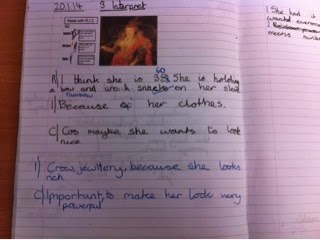 20.1.14 3 Interpret
Read with R.I.C
60
R) I think she is 38. She is holding
a bow and snacks on her sleve
rainbow
I) Because of her clothes.
C) Cos maybe she wants to look
nice.
I) Crow, jewllery, because she looks
rich
C) Important, to make her look very
powerful
1 She had
wanted everyone
2
means